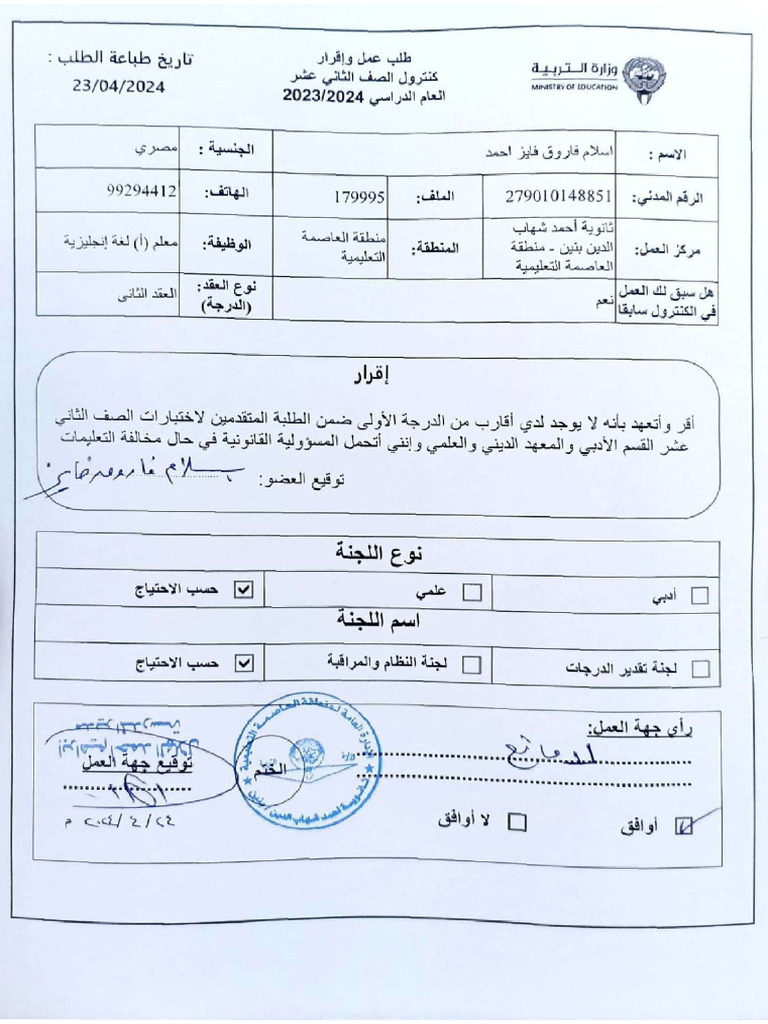 وزارة التربية
MINISTRY OF EDUCATION
طلب عمل وإقرار
كنترول الصف الثاني عشر
العام الدراسي 2023/2024
تاريخ طباعة الطلب :
23/04/2024
الاسم : اسلام فاروق فايز احمد الجنسية : مصري
الرقم المدني: 279010148851 الملف: 179995 الهاتف: 99294412
مركز العمل: ثانوية أحمد شهاب الدين بنين - منطقة العاصمة التعليمية المنطقة: منطقة العاصمة التعليمية الوظيفة: معلم (أ) لغة إنجليزية
هل سبق لك العمل في الكنترول سابقا نعم نوع العقد: (الدرجة) العقد الثانى
إقرار
أقر وأتعهد بأنه لا يوجد لدي أقارب من الدرجة الأولى ضمن الطلبة المتقدمين لاختبارات الصف الثاني
عشر القسم الأدبي والمعهد الديني والعلمي وإنني أتحمل المسؤولية القانونية في حال مخالفة التعليمات
توقيع العضو: إسلام فاروق فايز
نوع اللجنة
أدبي علمي حسب الاحتياج
اسم اللجنة
لجنة تقدير الدرجات لجنة النظام والمراقبة حسب الاحتياج
رأي جهة العمل:
ليس مانع
الختم
الإدارة العامة لمنطقة العاصمة التعليمية
ثانوية أحمد شهاب الدين بنين
مدير المدرسة
توقيع جهة العمل
أوافق لا أوافق
٢٤/٤/٢٠٢٤ م